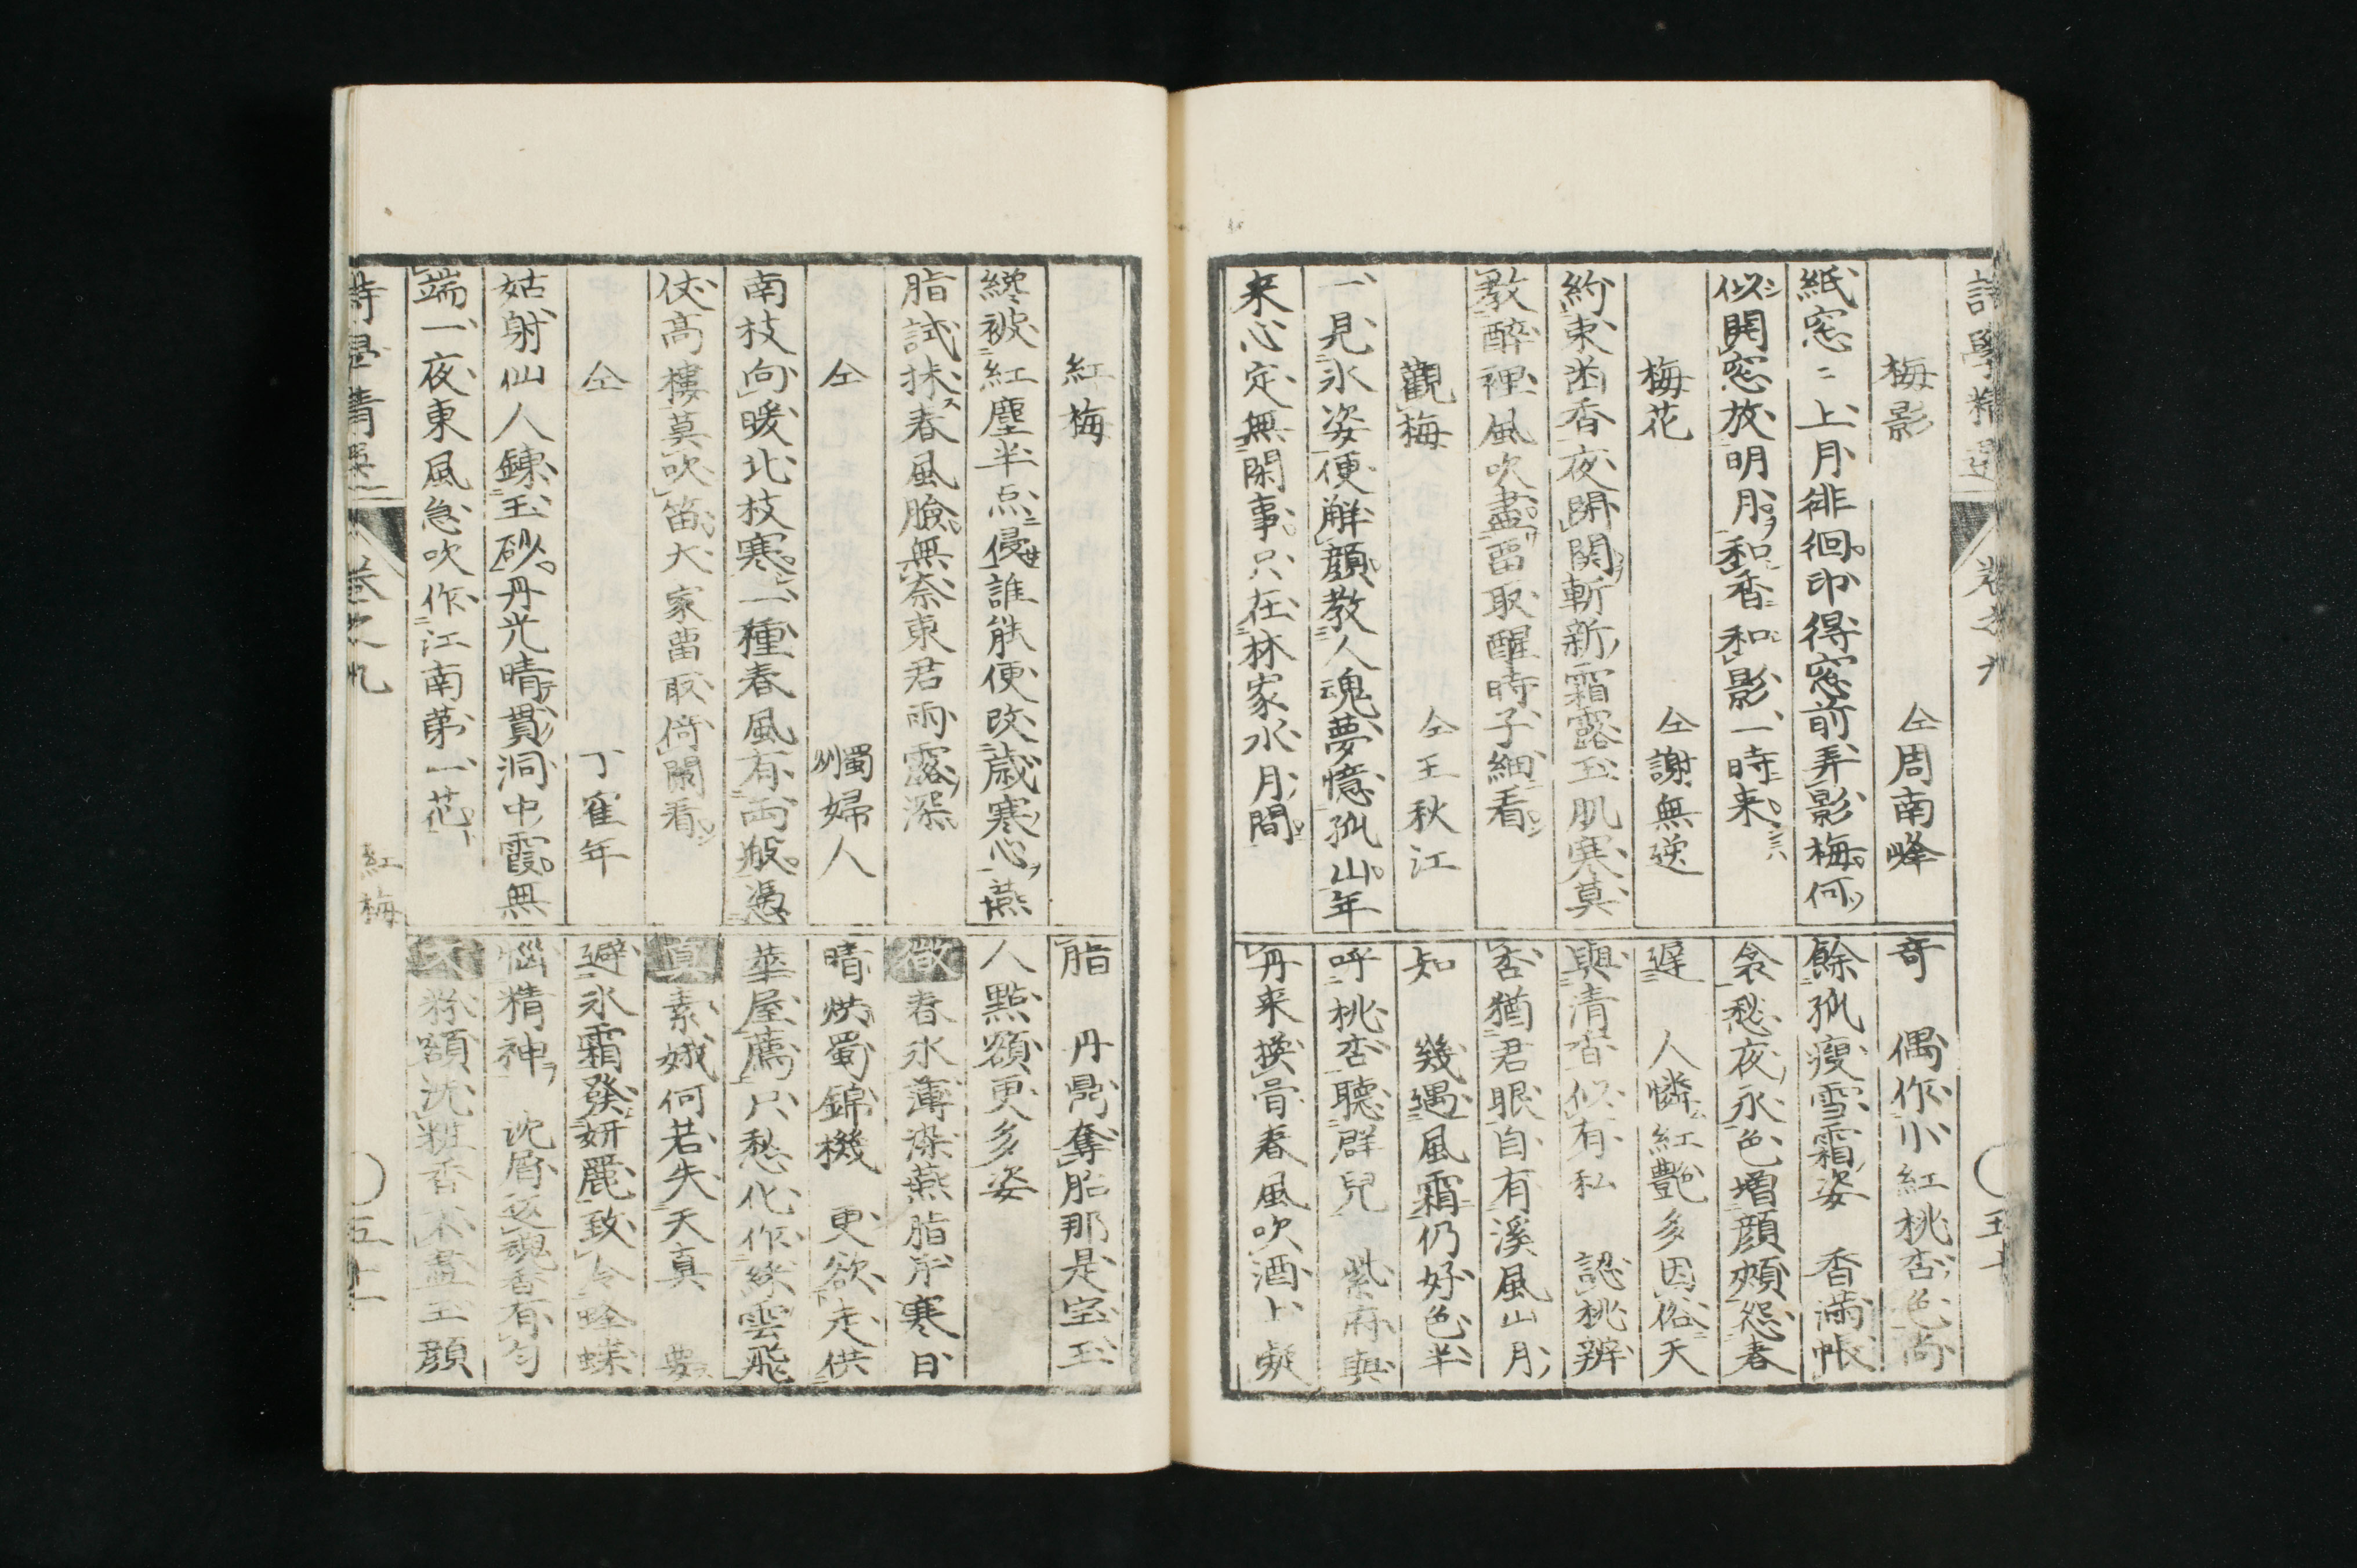 梅影　仝周南峰
紙窓〻上月徘徊印得窓前弄影梅何
似開窓放明月和香和影一時来
梅花　仝謝無逆
約束幽香夜閉関斬新霜露玉肌寒莫
教酔裡風吹盡畱取醒時子細看
觀梅　仝王秋江
一見氷姿便解顔教人魂夢憶孤山年
来心定無閑事只在林家水月間
竒　偶作小紅桃杏色尚
餘孤瘦雪霜姿　香滿帳
衾愁夜永色増顔頰怨春
遅　人憐紅艶多因俗天
與清香似有私　認桃辨
杏猶君眼自有溪風山月
知　幾遇風霜仍好色半
呼桃杏聴群兒　紫府與
丹来換骨春風吹酒上凝
紅梅
纔被紅塵半点侵誰能便改歳寒心燕
脂試抹春風臉無奈東君雨露深
仝　蜀婦人
南枝向暖北枝寒一種春風有両般憑
仗高樓莫吹笛大家畱取倚闌看
仝　丁寉年
姑射仙人錬玉砂丹光晴貫洞中霞無
端一夜東風急吹作江南苐一花
脂　丹鼎奪胎那是宝玉
人點額更多姿
微　春氷薄染燕脂有寒日
晴烘蜀錦機　更欲走供
華屋薦只愁化作綵雲飛
真　素娥何若失天真　要
避氷霜發妍麗致令蜂蝶
惱精神　沈屑返魂香有匀
粉額洗粧香不盡玉顔
卷之九　紅梅　五十一